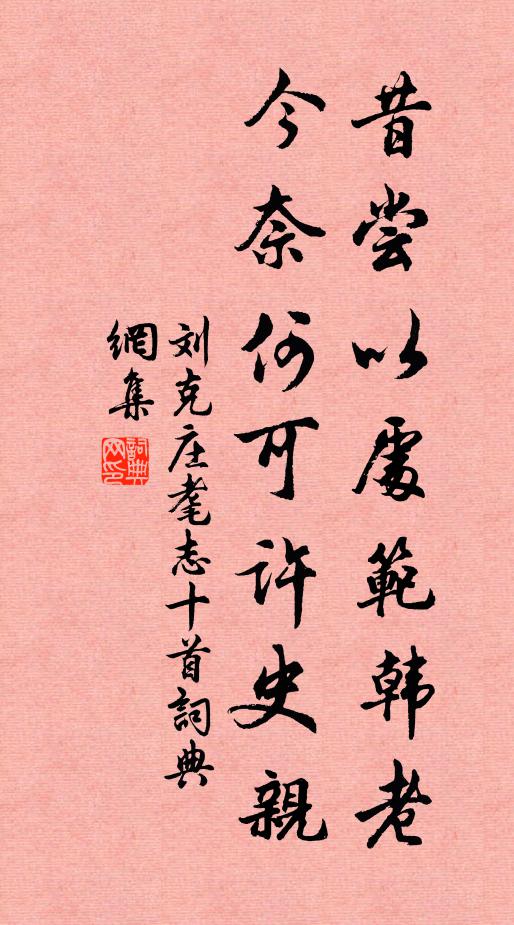 昔尝以處範韩老
今奈何可许史親
刘克庄耄志十首詞典
網集
詞典網印